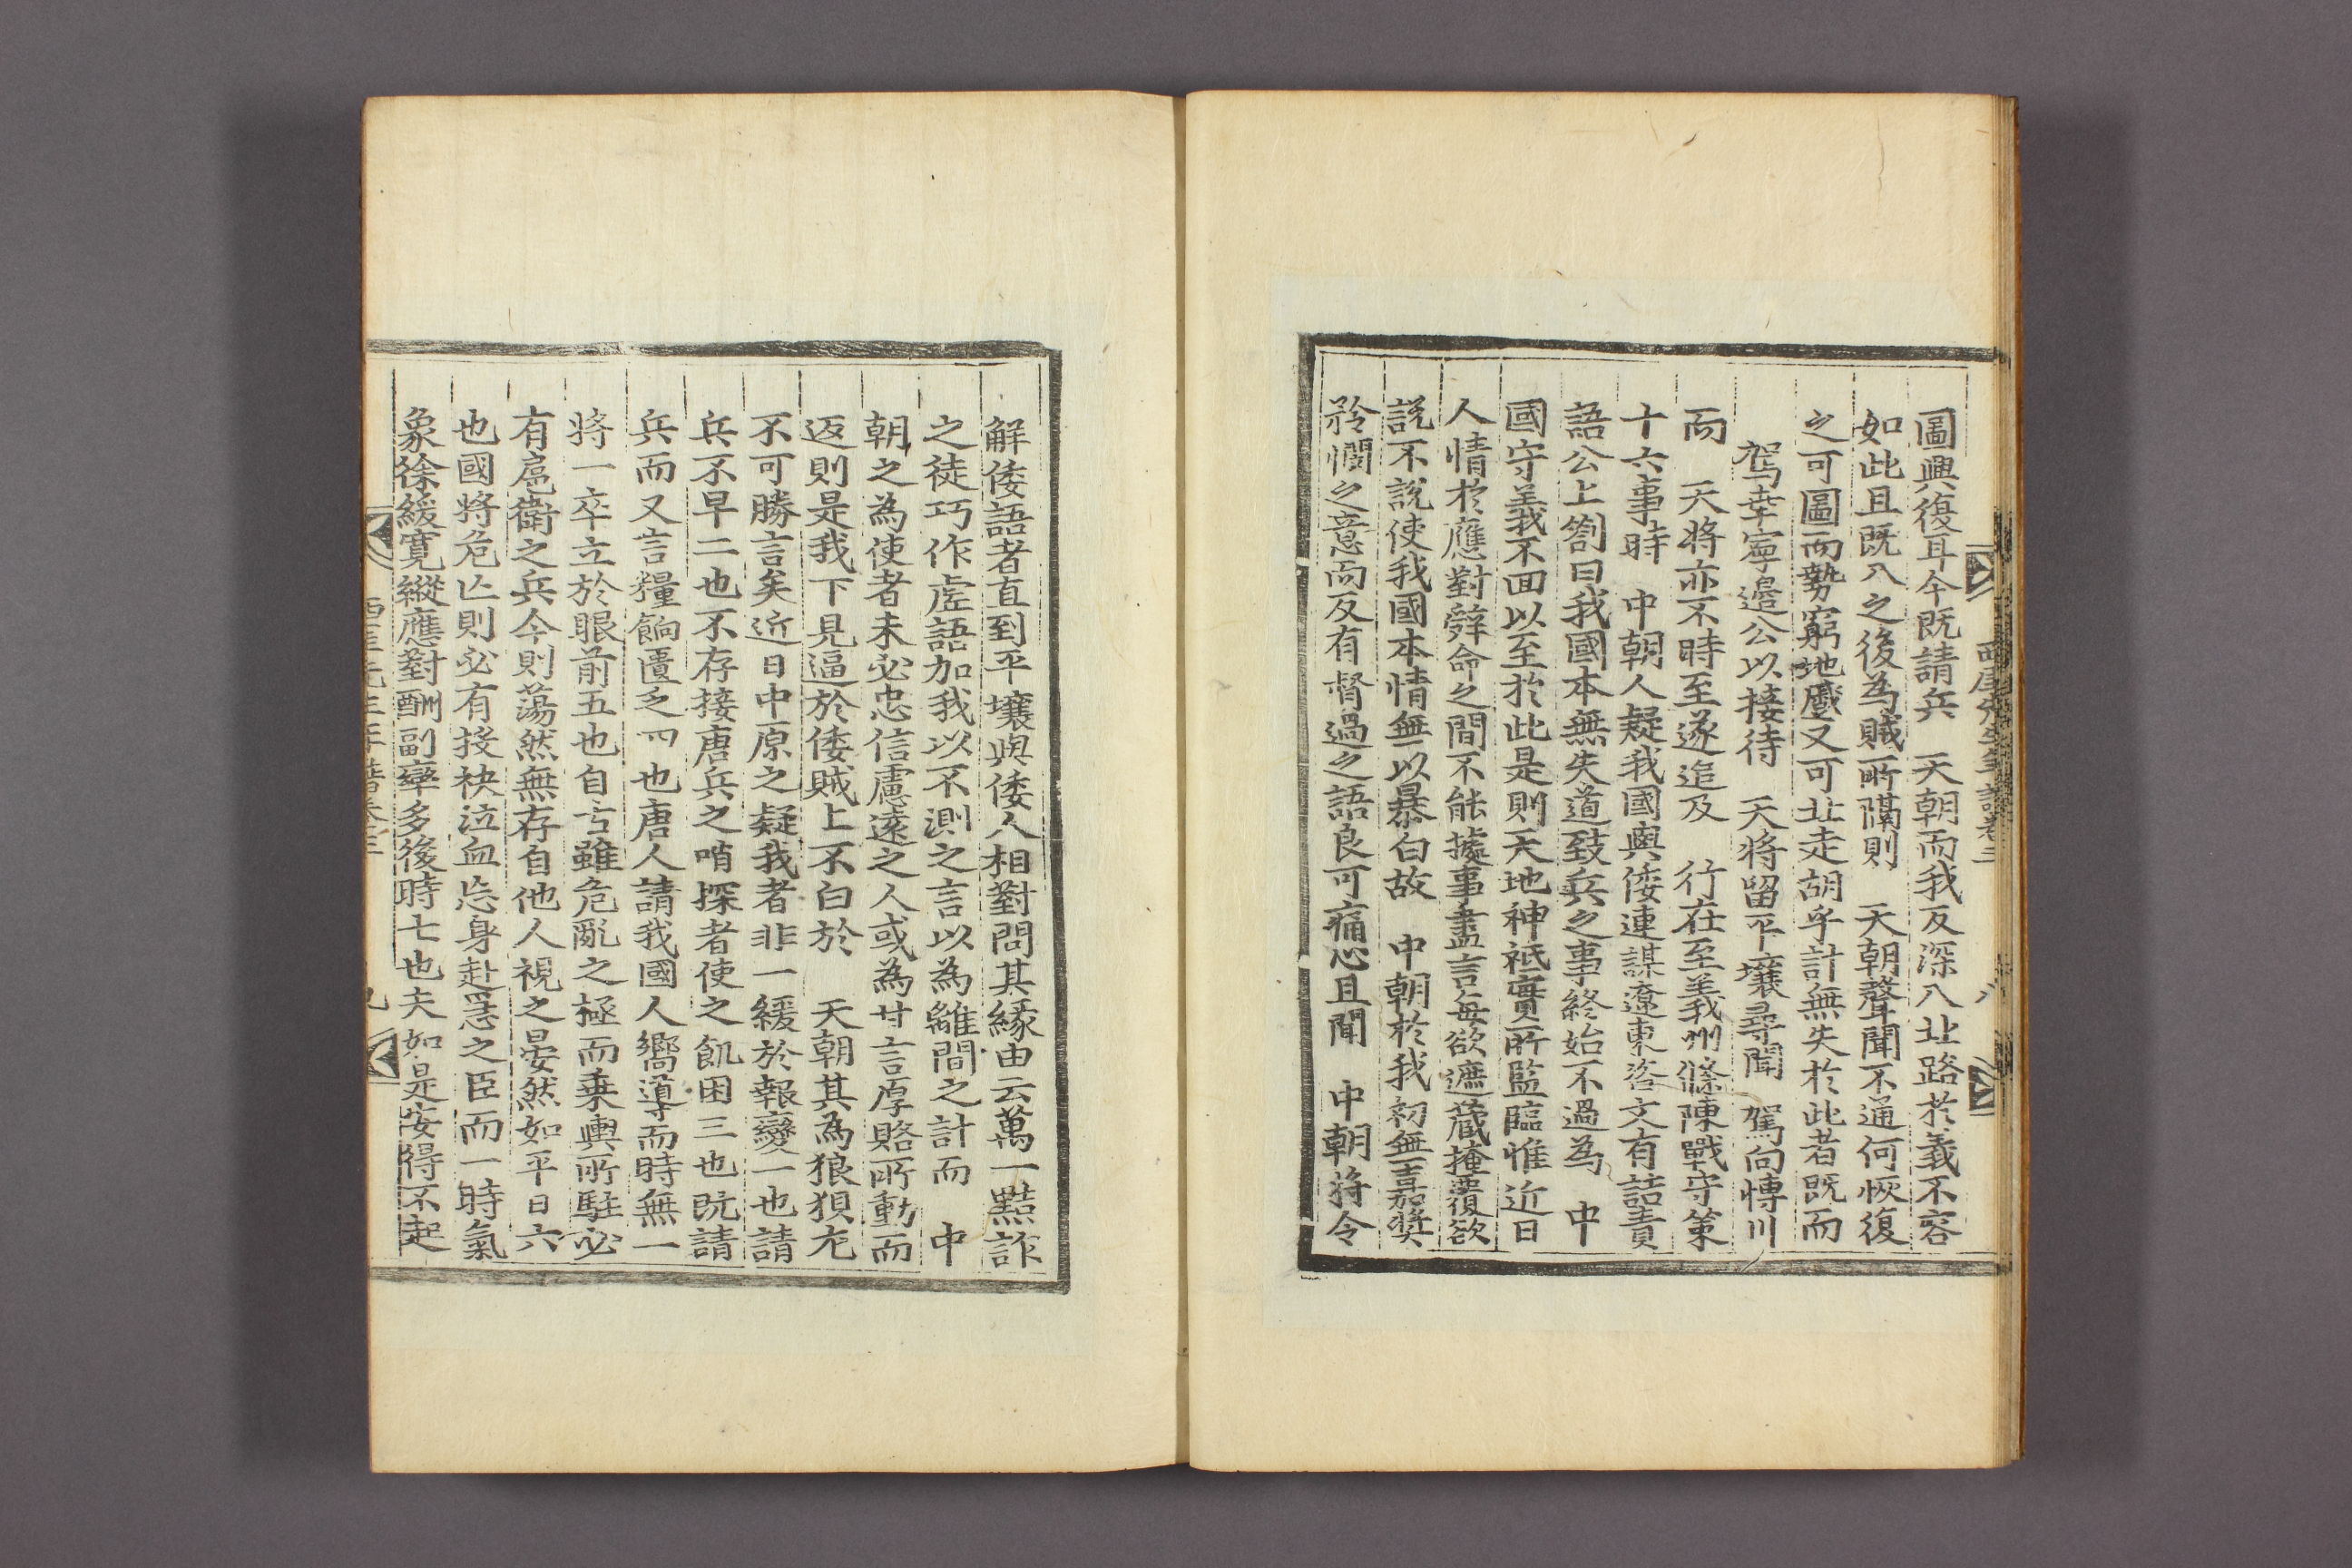 西厓先生年譜卷三 八
圖興復耳今既請兵 天朝而我反深入北路於義不容
如此且既入之後為賊所隔則 天朝聲聞不通何恢復
之可圖而勢窮地蹙又可北走胡乎計無失於此者既而
駕幸寧邊公以接待 天將留平壤尋聞 駕向慱川
而 天將亦不時至遂追及 行在至義州條陳戰守策
十六事時 中朝人疑我國與倭連謀遼東咨文有詰責
語公上劄曰我國本無失道致兵之事終始不過為 中
國守義不回以至於此是則天地神祗實所監臨惟近日
人情於應對辭命之間不能據事盡言每欲遮藏掩覆欲
説不說使我國本情無以暴白故 中朝於我初無嘉奬
矜憫之意而反有督過之語良可痛心且聞 中朝將令
解倭語者直到平壤與倭人相對問其緣由云萬一黠詐
之徒巧作虛語加我以不測之言以為離間之計而 中
朝之為使者未必忠信慮遠之人或為甘言厚賂所動而
返則是我下見逼於倭賊上不白於 天朝其為狼狽尤
不可勝言矣近日中原之疑我者非一緩於報變一也請
兵不早二也不存接唐兵之哨探者使之飢困三也既請
兵而又言糧餉匱乏四也唐人請我國人嚮導而時無一
將一卒立於眼前五也自古雖危亂之極而乗輿所駐必
有扈衛之兵今則蕩然無存自他人視之晏然如平日六
也國將危亡則必有投袂泣血忘身赴急之臣而一時氣
象徐緩寬縱應對酬副率多後時七也夫如是安得不起
西厓先生年譜卷三 九